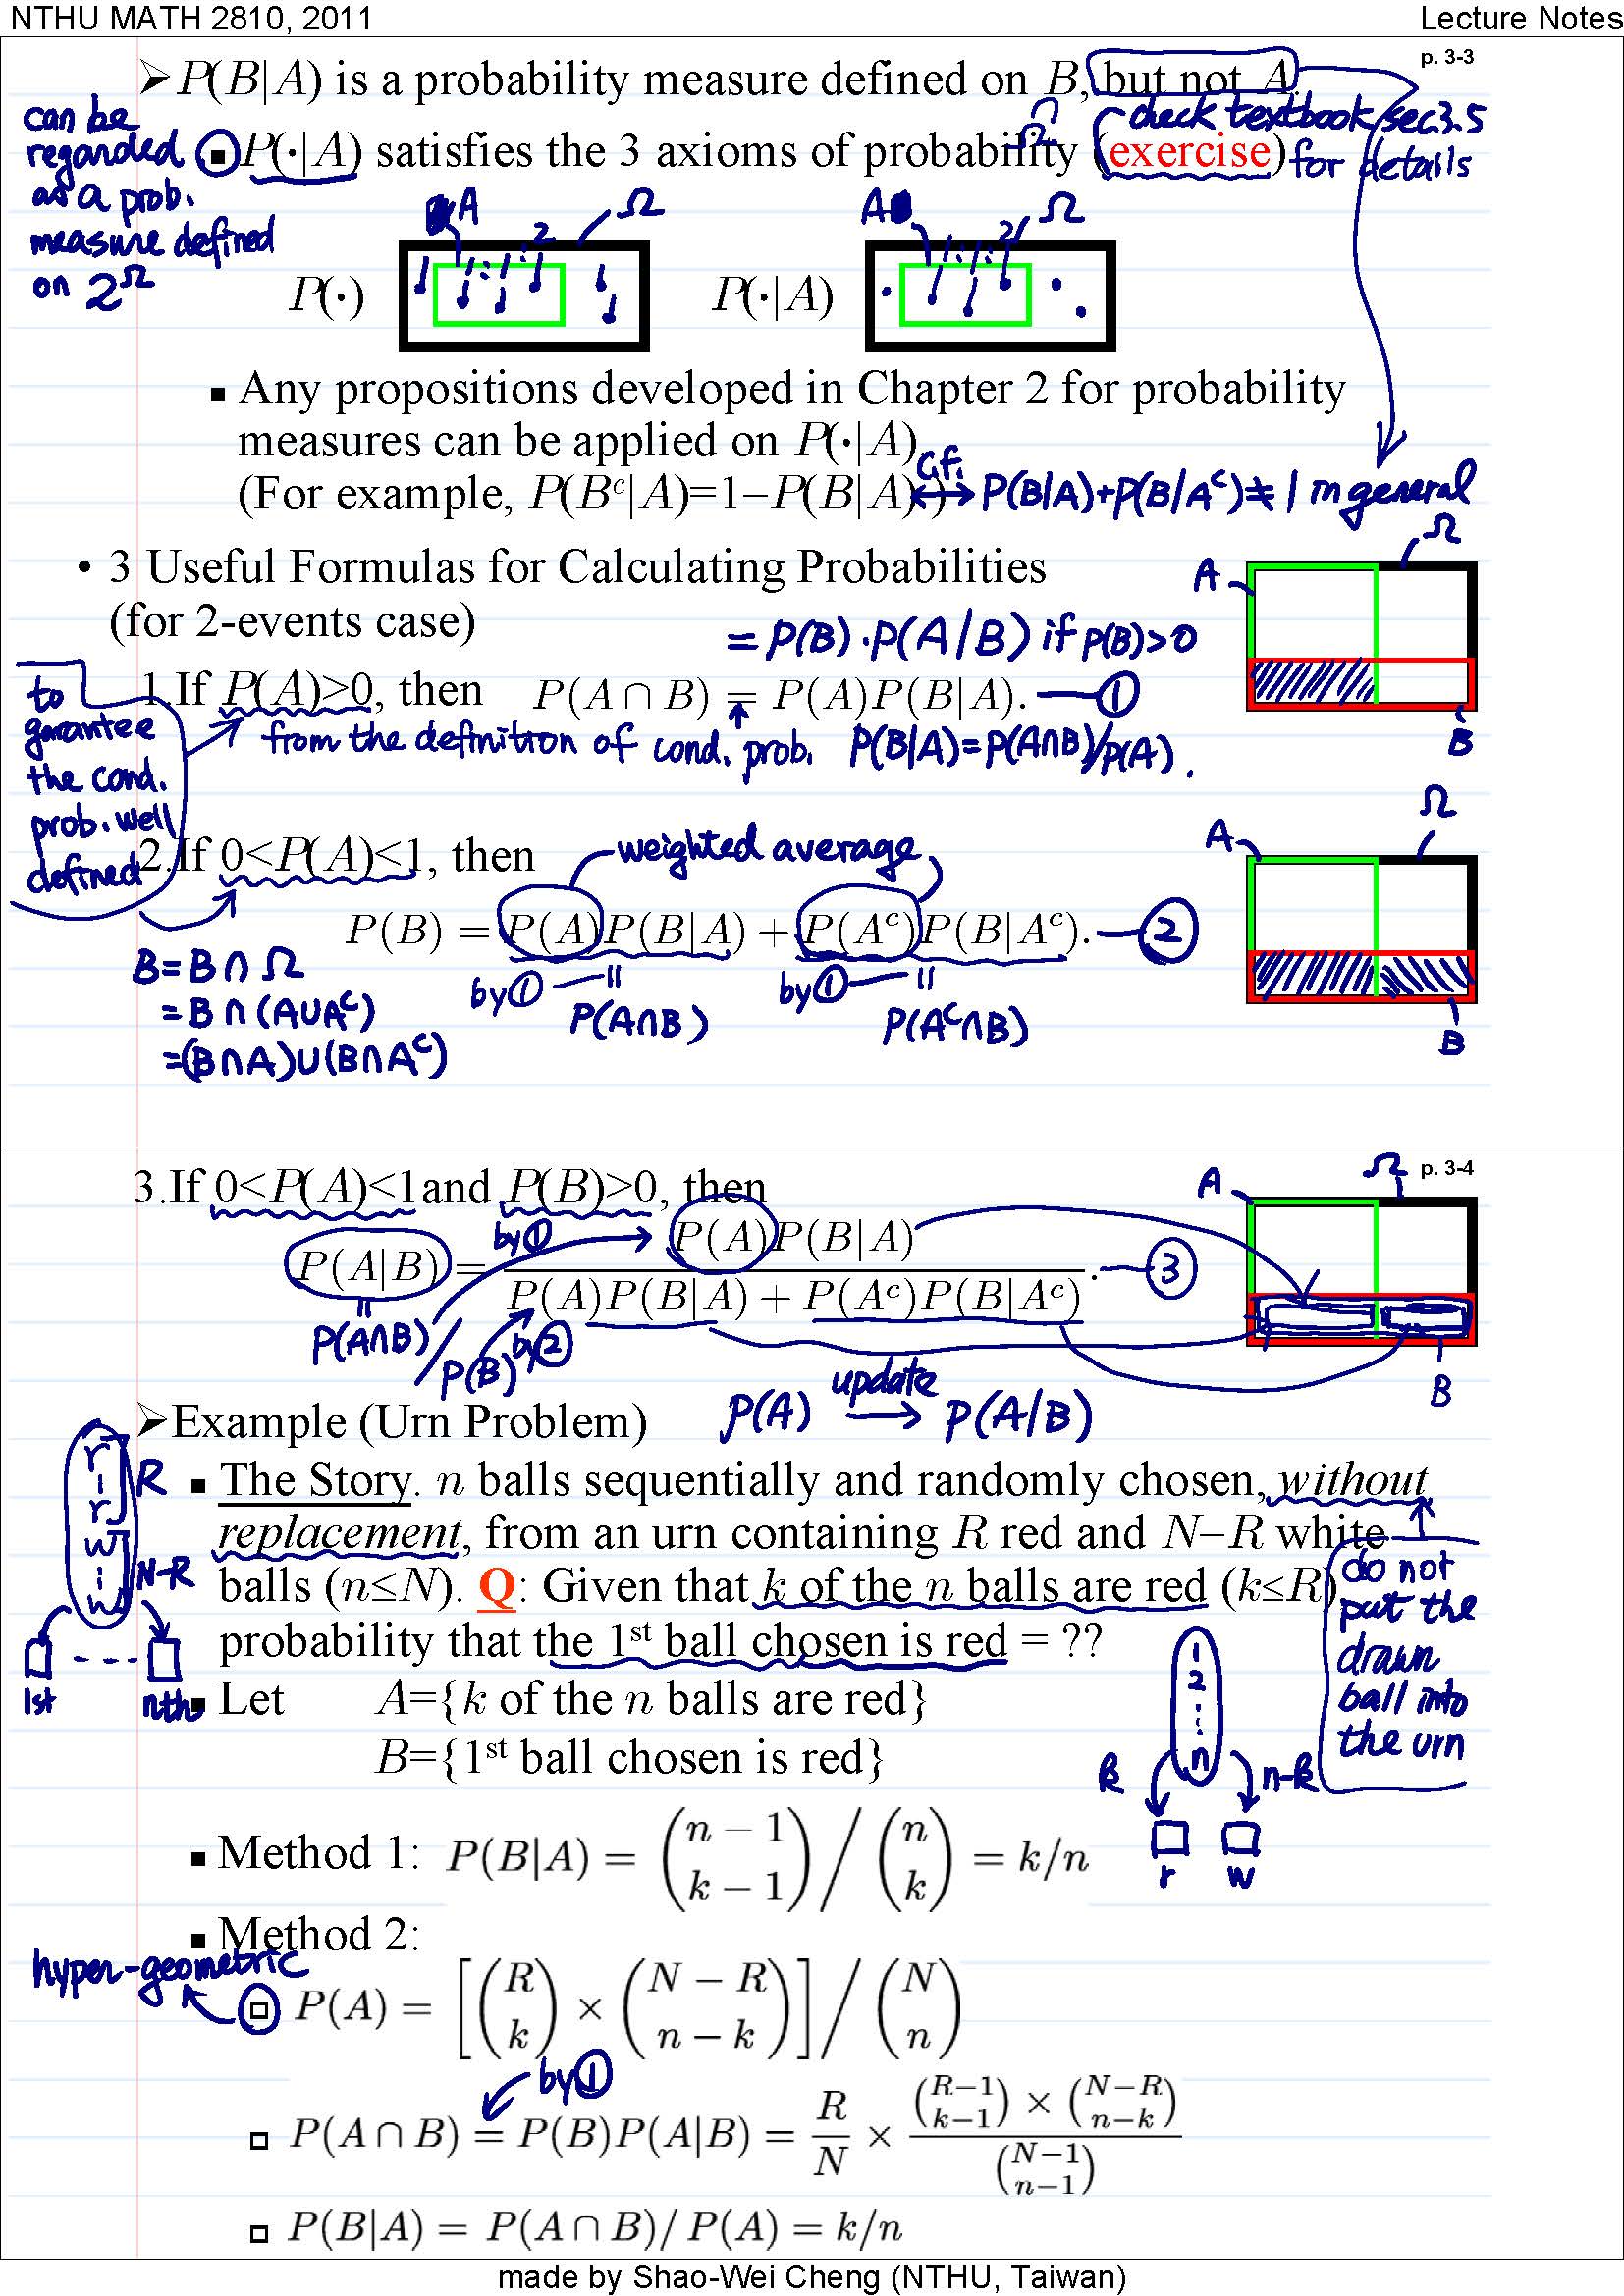 NTHU MATH 2810, 2011 Lecture Notes
p. 3-3
➢P(B|A) is a probability measure defined on B, but not A.
can be regarded as a prob. measure defined on 2^Ω
Ω
check textbook sec3.5 for details
▪P(·|A) satisfies the 3 axioms of probability (exercise)
A Ω
P(·)
A Ω
P(·|A)
▪ Any propositions developed in Chapter 2 for probability
measures can be applied on P(·|A)
(For example, P(Bᶜ|A)=1–P(B|A))
c.f. ↔ P(B|A)+P(B|Aᶜ)≠1 in general
• 3 Useful Formulas for Calculating Probabilities
(for 2-events case)
A Ω B
= P(B)·P(A|B) if P(B)>0
1.If P(A)>0, then P(A ∩ B) = P(A)P(B|A). —①
from the definition of cond. prob. P(B|A)=P(A∩B)/P(A).
to garantee the cond. prob. well defined
2.If 0<P(A)<1, then
weighted average
P(B) = P(A)P(B|A) + P(Aᶜ)P(B|Aᶜ). —②
by① = P(A∩B)
by① = P(Aᶜ∩B)
B=B∩Ω
=B∩(A∪Aᶜ)
=(B∩A)∪(B∩Aᶜ)
A Ω B
p. 3-4
3.If 0<P(A)<1 and P(B)>0, then
P(A|B) = P(A)P(B|A) / P(A)P(B|A) + P(Aᶜ)P(B|Aᶜ). —③
by①
P(A∩B)/P(B)
by②
A Ω B
P(A) update → P(A|B)
➢Example (Urn Problem)
▪ The Story. n balls sequentially and randomly chosen, without
replacement, from an urn containing R red and N–R white
balls (n≤N). Q: Given that k of the n balls are red (k≤R),
probability that the 1st ball chosen is red = ??
r r R
w w N-R
1st --- nth
do not put the drawn ball into the urn
▪ Let A={k of the n balls are red}
B={1st ball chosen is red}
1 2 n
k n-k
r w
▪ Method 1: P(B|A) = (n − 1 k − 1) / (n k) = k/n
▪ Method 2:
hyper-geometric
□ P(A) = [(R k) × (N − R n − k)] / (N n)
by①
□ P(A ∩ B) = P(B)P(A|B) = R/N × (R−1 k−1) × (N−R n−k) / (N−1 n−1)
□ P(B|A) = P(A ∩ B)/ P(A) = k/n
made by Shao-Wei Cheng (NTHU, Taiwan)